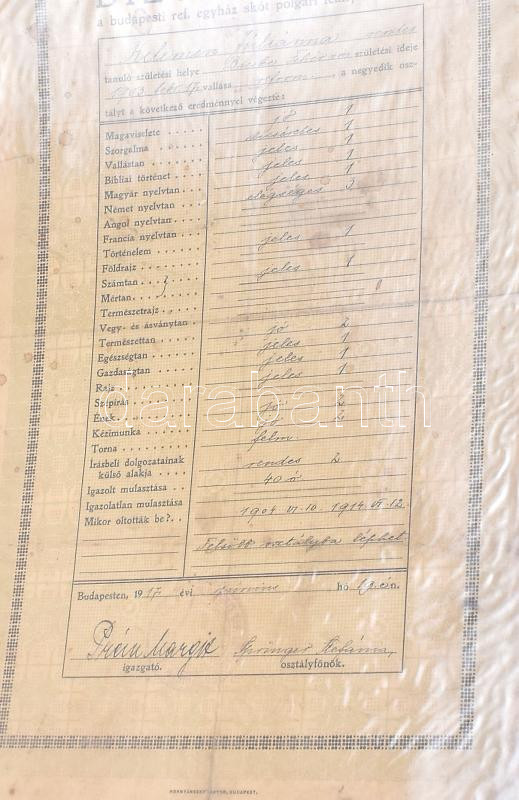 a budapesti ref. egyház skót polgári
Kelemen Julianna rendes
tanuló születési helye születési ideje
1903 vallása reform. a negyedik osz-
tályt a következő eredménnyel végezte:
Magaviselete jó 1
Szorgalma dicséretes 1
Vallástan jeles 1
Bibliai történet jeles 1
Magyar nyelvtan jeles 1
Német nyelvtan elégséges 3
Angol nyelvtan
Francia nyelvtan
Történelem jeles 1
Földrajz
Számtan jeles 1
Mértan
Természetrajz
Vegy- és ásványtan
Természettan jó 2
Egészségtan jeles 1
Gazdaságtan jeles 1
Rajz jeles 1
Szépírás
Ének jó 2
Kézimunka jó 2
Torna felm.
Írásbeli dolgozatainak
külső alakja rendes 2
Igazolt mulasztása 40 ó
Igazolatlan mulasztása
Mikor oltották be? 1904 VI. 10. 1914. VI. 12.
Felsőbb osztályba léphet.
Budapesten, 1917 évi június hó 19-én.
Prém Margit
igazgató.
Springer Stefánia
osztályfőnök.
darabanth
HORNYÁNSZKY VIKTOR, BUDAPEST.